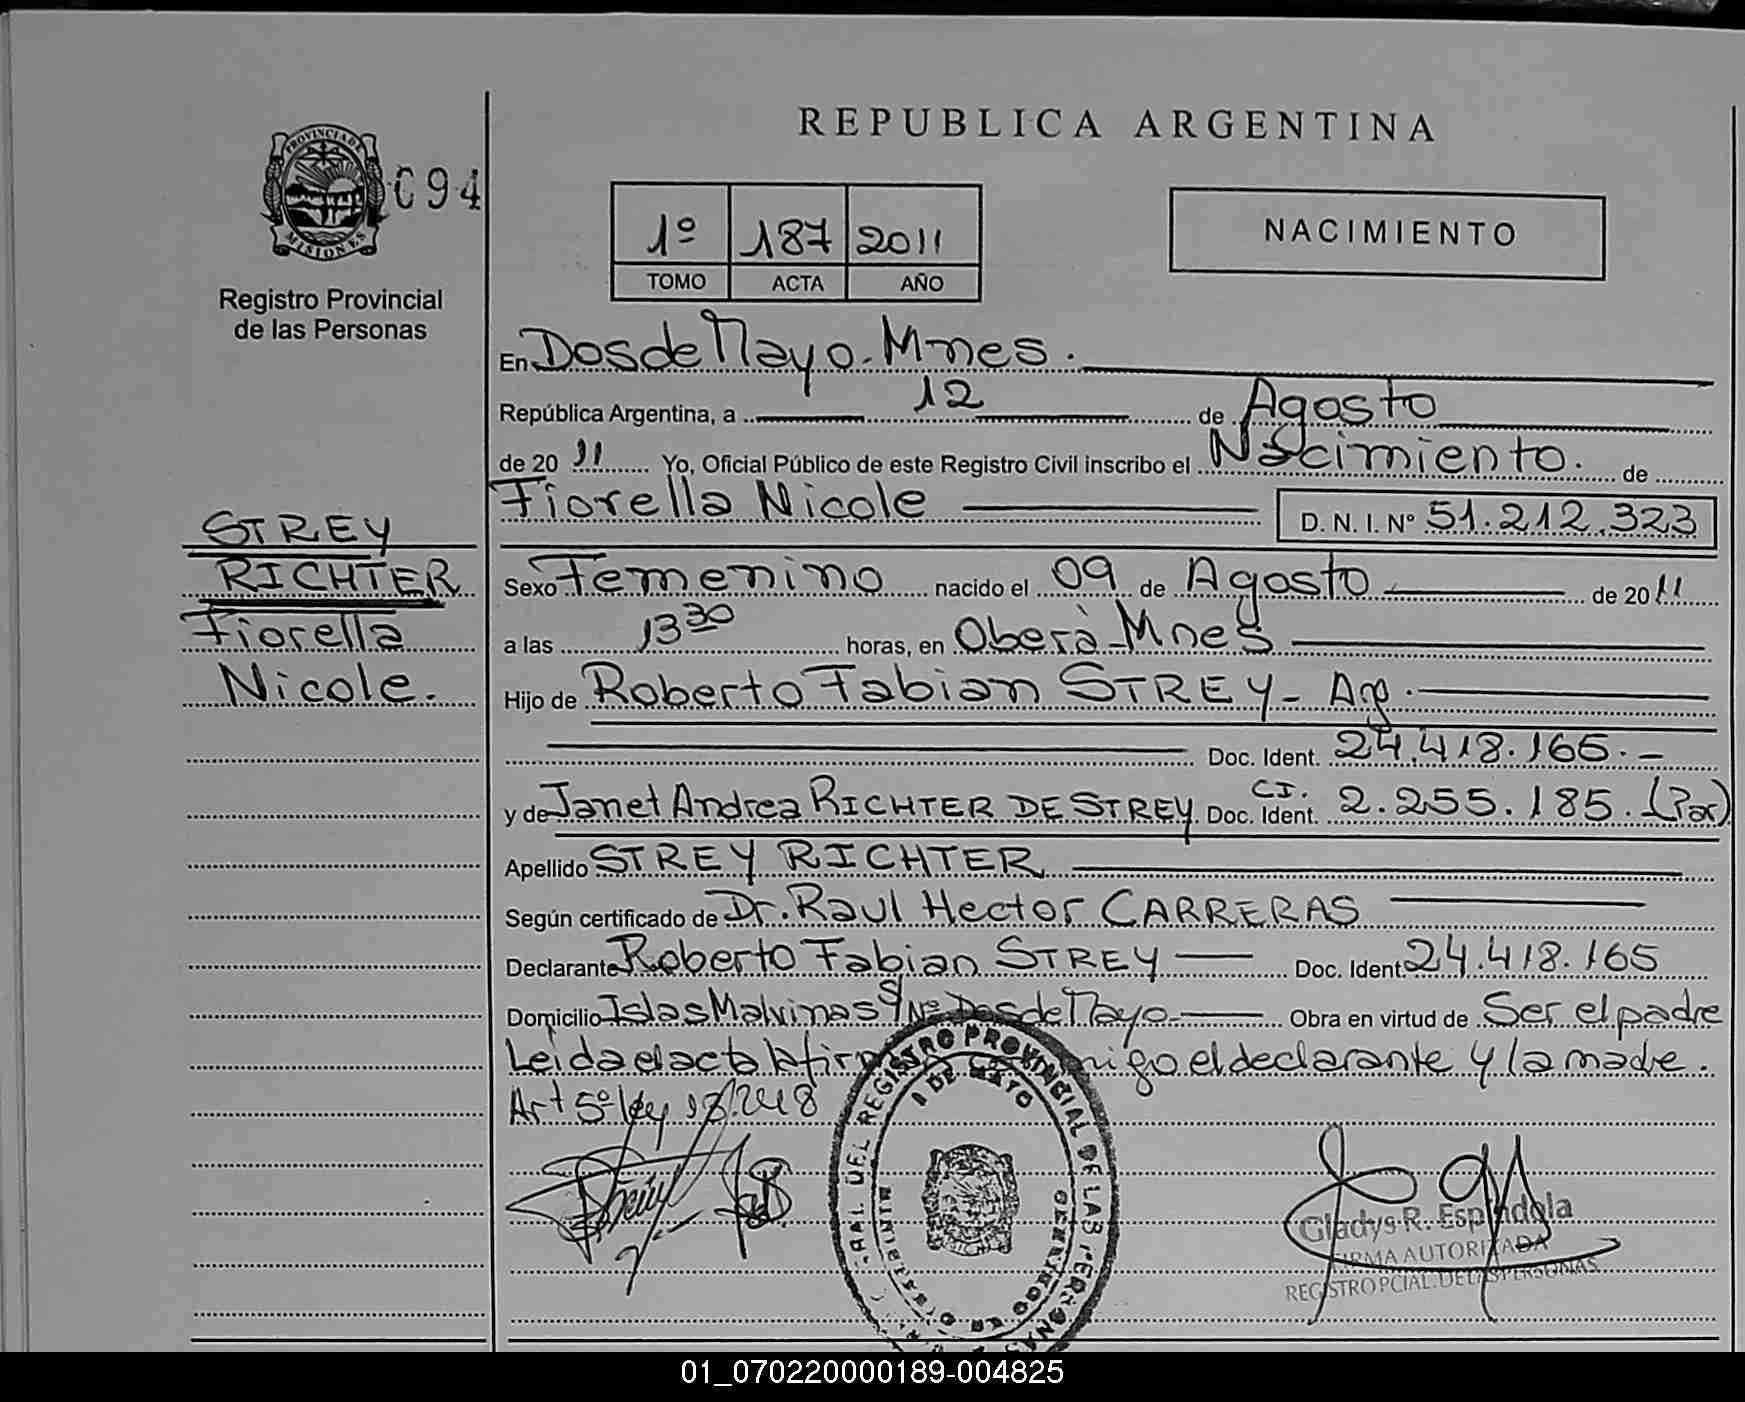 REPUBLICA ARGENTINA
PROVINCIA DE
MISIONES
094
1º 187 2011
TOMO ACTA AÑO
NACIMIENTO
Registro Provincial
de las Personas
En Dos de Mayo. Mnes.
República Argentina, a 12 de Agosto
de 20 11 Yo, Oficial Público de este Registro Civil inscribo el Nacimiento. de
Fiorella Nicole D. N. I. Nº 51.212.323
STREY
RICHTER
Fiorella
Nicole.
Sexo Femenino nacido el 09 de Agosto de 2011
a las 13 30 horas, en Oberà-Mnes
Hijo de Roberto Fabian STREY- Arg.
Doc. Ident. 24.418.165.-
y de Janet Andrea RICHTER DE STREY Doc. Ident. C.I. 2.255.185. (Par)
Apellido STREY RICHTER
Según certificado de Dr. Raul Hector CARRERAS
Declarante Roberto Fabian STREY Doc. Ident. 24.418.165
Domicilio Islas Malvinas S/Nº Dos de Mayo Obra en virtud de Ser el padre
Leida el acta la el declarante y la madre.
Art 5º Ley 18.248
REGISTRO PROVINCIAL DE LAS PERSONAS
DE MAYO
Gladys R. Espindola
FIRMA AUTORIZADA
REGISTRO PCIAL. DE LAS PERSONAS
01_070220000189-004825